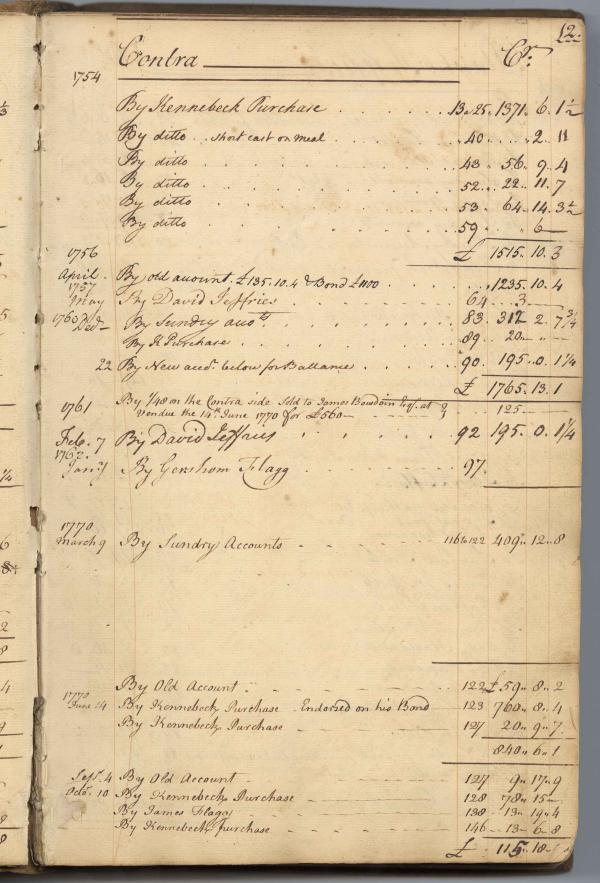 12.
Contra Cr.
1754
By Kennebeck Purchase 13 & 25 1371 „ 6 „ 1 1/2
By ditto .. short cast on meal 40 2 „ 11
By ditto 43 56 „ 9 „ 4
By ditto 52 22 „ 11 „ 7
By ditto 53 64 „ 14 „ 3 1/2
By ditto 59 6 —
£ 1515 „ 10 „ 3
1756
April By old account £135.10.4 & Bond £1100 1235 „ 10 „ 4
1757
May By David Jeffries 64 3
1760 Decr By Sundry accots 83 312 „ 2 „ 7 3/4
By K Purchase 89 20 „ „ —
22 By New accot. below for Ballance 90 195 „ 0 „ 1 1/4
£ 1765 „ 13 „ 1
By 1/48 on the Contra side Sold to James Bowdoin Esqr. at
Vendue the 14th June 1770 for £560 — 125 —
1761
Feb. 7 By David Jeffries 92 195 „ 0 „ 1 1/4
1762
Jany By Gershom Flagg 97
1770
March 9 By Sundry Accounts 116 to 122 409 „ 12 „ 8
By Old Account 122 £59 „ 8 „ 2
1770
June 14 By Kennebeck Purchase Endorsed on his Bond 123 760 „ 8 „ 4
By Kennebeck Purchase 127 20 „ 9 „ 7
840 „ 6 „ 1
Sept. 4 By Old Account 127 9 „ 17 „ 9
Octo. 10 By Kennebeck Purchase 128 78 „ 15 —
By James Flagg 138 13 „ 19 „ 4
By Kennebeck purchase 146 13 „ 6 „ 8
£ 115 „ 18